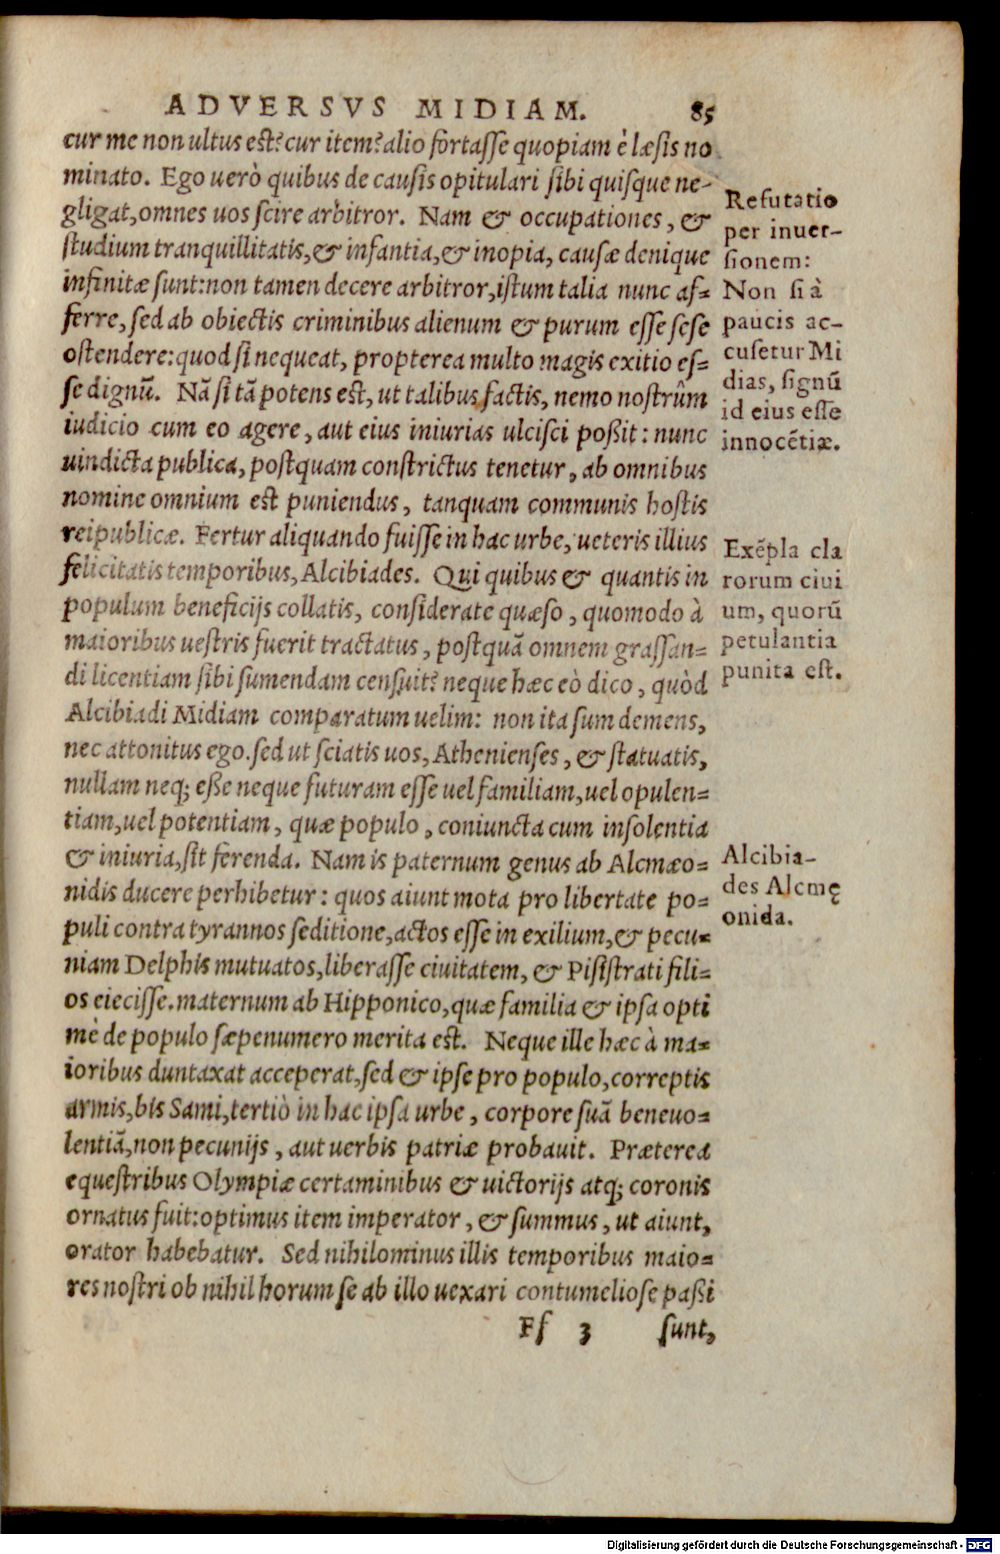 ADVERSVS MIDIAM. 85
cur me non ultus est? cur item? alio fortasse quopiam è læsis no
minato. Ego uerò quibus de causis opitulari sibi quisque ne-
gligat, omnes uos scire arbitror. Nam & occupationes, &
studium tranquillitatis, & infantia, & inopia, causæ denique
infinitæ sunt: non tamen decere arbitror, istum talia nunc af-
ferre, sed ab obiectis criminibus alienum & purum esse sese
ostendere: quod si nequeat, propterea multo magis exitio es-
se dignũ. Nã si tã potens est, ut talibus factis, nemo nostrûm
iudicio cum eo agere, aut eius iniurias ulcisci poßit: nunc
uindicta publica, postquam constrictus tenetur, ab omnibus
nomine omnium est puniendus, tanquam communis hostis
reipublicæ. Fertur aliquando fuisse in hac urbe, ueteris illius
felicitatis temporibus, Alcibiades. Qui quibus & quantis in
populum beneficijs collatis, considerate quæso, quomodo à
maioribus uestris fuerit tractatus, postquã omnem grassan-
di licentiam sibi sumendam censuit? neque hæc eò dico, quòd
Alcibiadi Midiam comparatum uelim: non ita sum demens,
nec attonitus ego. sed ut sciatis uos, Athenienses, & statuatis,
nullam neq; eße neque futuram esse uel familiam, uel opulen-
tiam, uel potentiam, quæ populo, coniuncta cum insolentia
& iniuria, sit ferenda. Nam is paternum genus ab Alcmæo-
nidis ducere perhibetur: quos aiunt mota pro libertate po-
puli contra tyrannos seditione, actos esse in exilium, & pecu-
niam Delphis mutuatos, liberasse ciuitatem, & Pisistrati fili-
os eiecisse. maternum ab Hipponico, quæ familia & ipsa opti
mè de populo sæpenumero merita est. Neque ille hæc à ma-
ioribus duntaxat acceperat, sed & ipse pro populo, correptis
armis, bis Sami, tertiò in hac ipsa urbe, corpore suã beneuo-
lentiã, non pecunijs, aut uerbis patriæ probauit. Præterea
equestribus Olympiæ certaminibus & uictorijs atq; coronis
ornatus fuit: optimus item imperator, & summus, ut aiunt,
orator habebatur. Sed nihilominus illis temporibus maio-
res nostri ob nihil horum se ab illo uexari contumeliose paßi
Ff 3 sunt,
Refutatio
per inuer-
sionem:
Non si à
paucis ac-
cusetur Mi
dias, signũ
id eius esse
innocẽtiæ.
Exẽpla cla
rorum ciui
um, quorũ
petulantia
punita est.
Alcibia-
des Alcmę
onida.
Digitalisierung gefördert durch die Deutsche Forschungsgemeinschaft - DFG